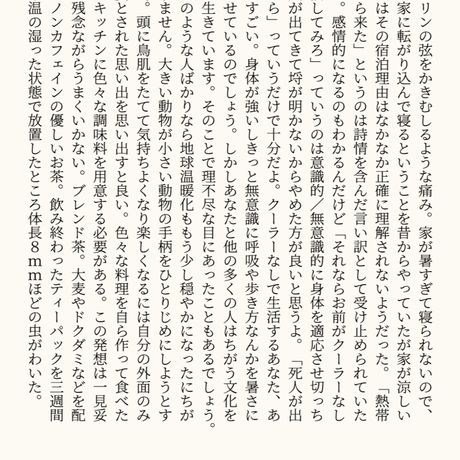 リンの弦をかきむしるような痛み。家が暑すぎて寝られないので、
家に転がり込んで寝るということを昔からやっていたが家が涼しい
はその宿泊理由はなかなか正確に理解されないようだった。「熱帯
ら来た」というのは詩情を含んだ言い訳として受け止められていた
。感情的になるのもわかるんだけど「それならお前がクーラーなし
してみろ」っていうのは意識的／無意識的に身体を適応させ切っち
が出てきて埒が明かないからやめた方が良いと思うよ。「死人が出
ら」っていうだけで十分だよ。クーラーなしで生活するあなた、あ
すごい。身体が強いしきっと無意識に呼吸や歩き方なんかを暑さに
せているのでしょう。しかしあなたと他の多くの人はちがう文化を
生きています。そのことで理不尽な目にあったこともあるでしょう。
のような人ばかりなら地球温暖化ももう少し穏やかになったにちが
ません。大きい動物が小さい動物の手柄をひとりじめにしようとす
。頭に鳥肌をたてて気持ちよくなり楽しくなるには自分の外面のみ
とされた思い出を思い出すと良い。色々な料理を自ら作って食べた
キッチンに色々な調味料を用意する必要がある。この発想は一見妥
残念ながらうまくいかない。ブレンド茶。大麦やドクダミなどを配
ノンカフェインの優しいお茶。飲み終わったティーパックを三週間
温の湿った状態で放置したところ体長８ｍｍほどの虫がわいた。